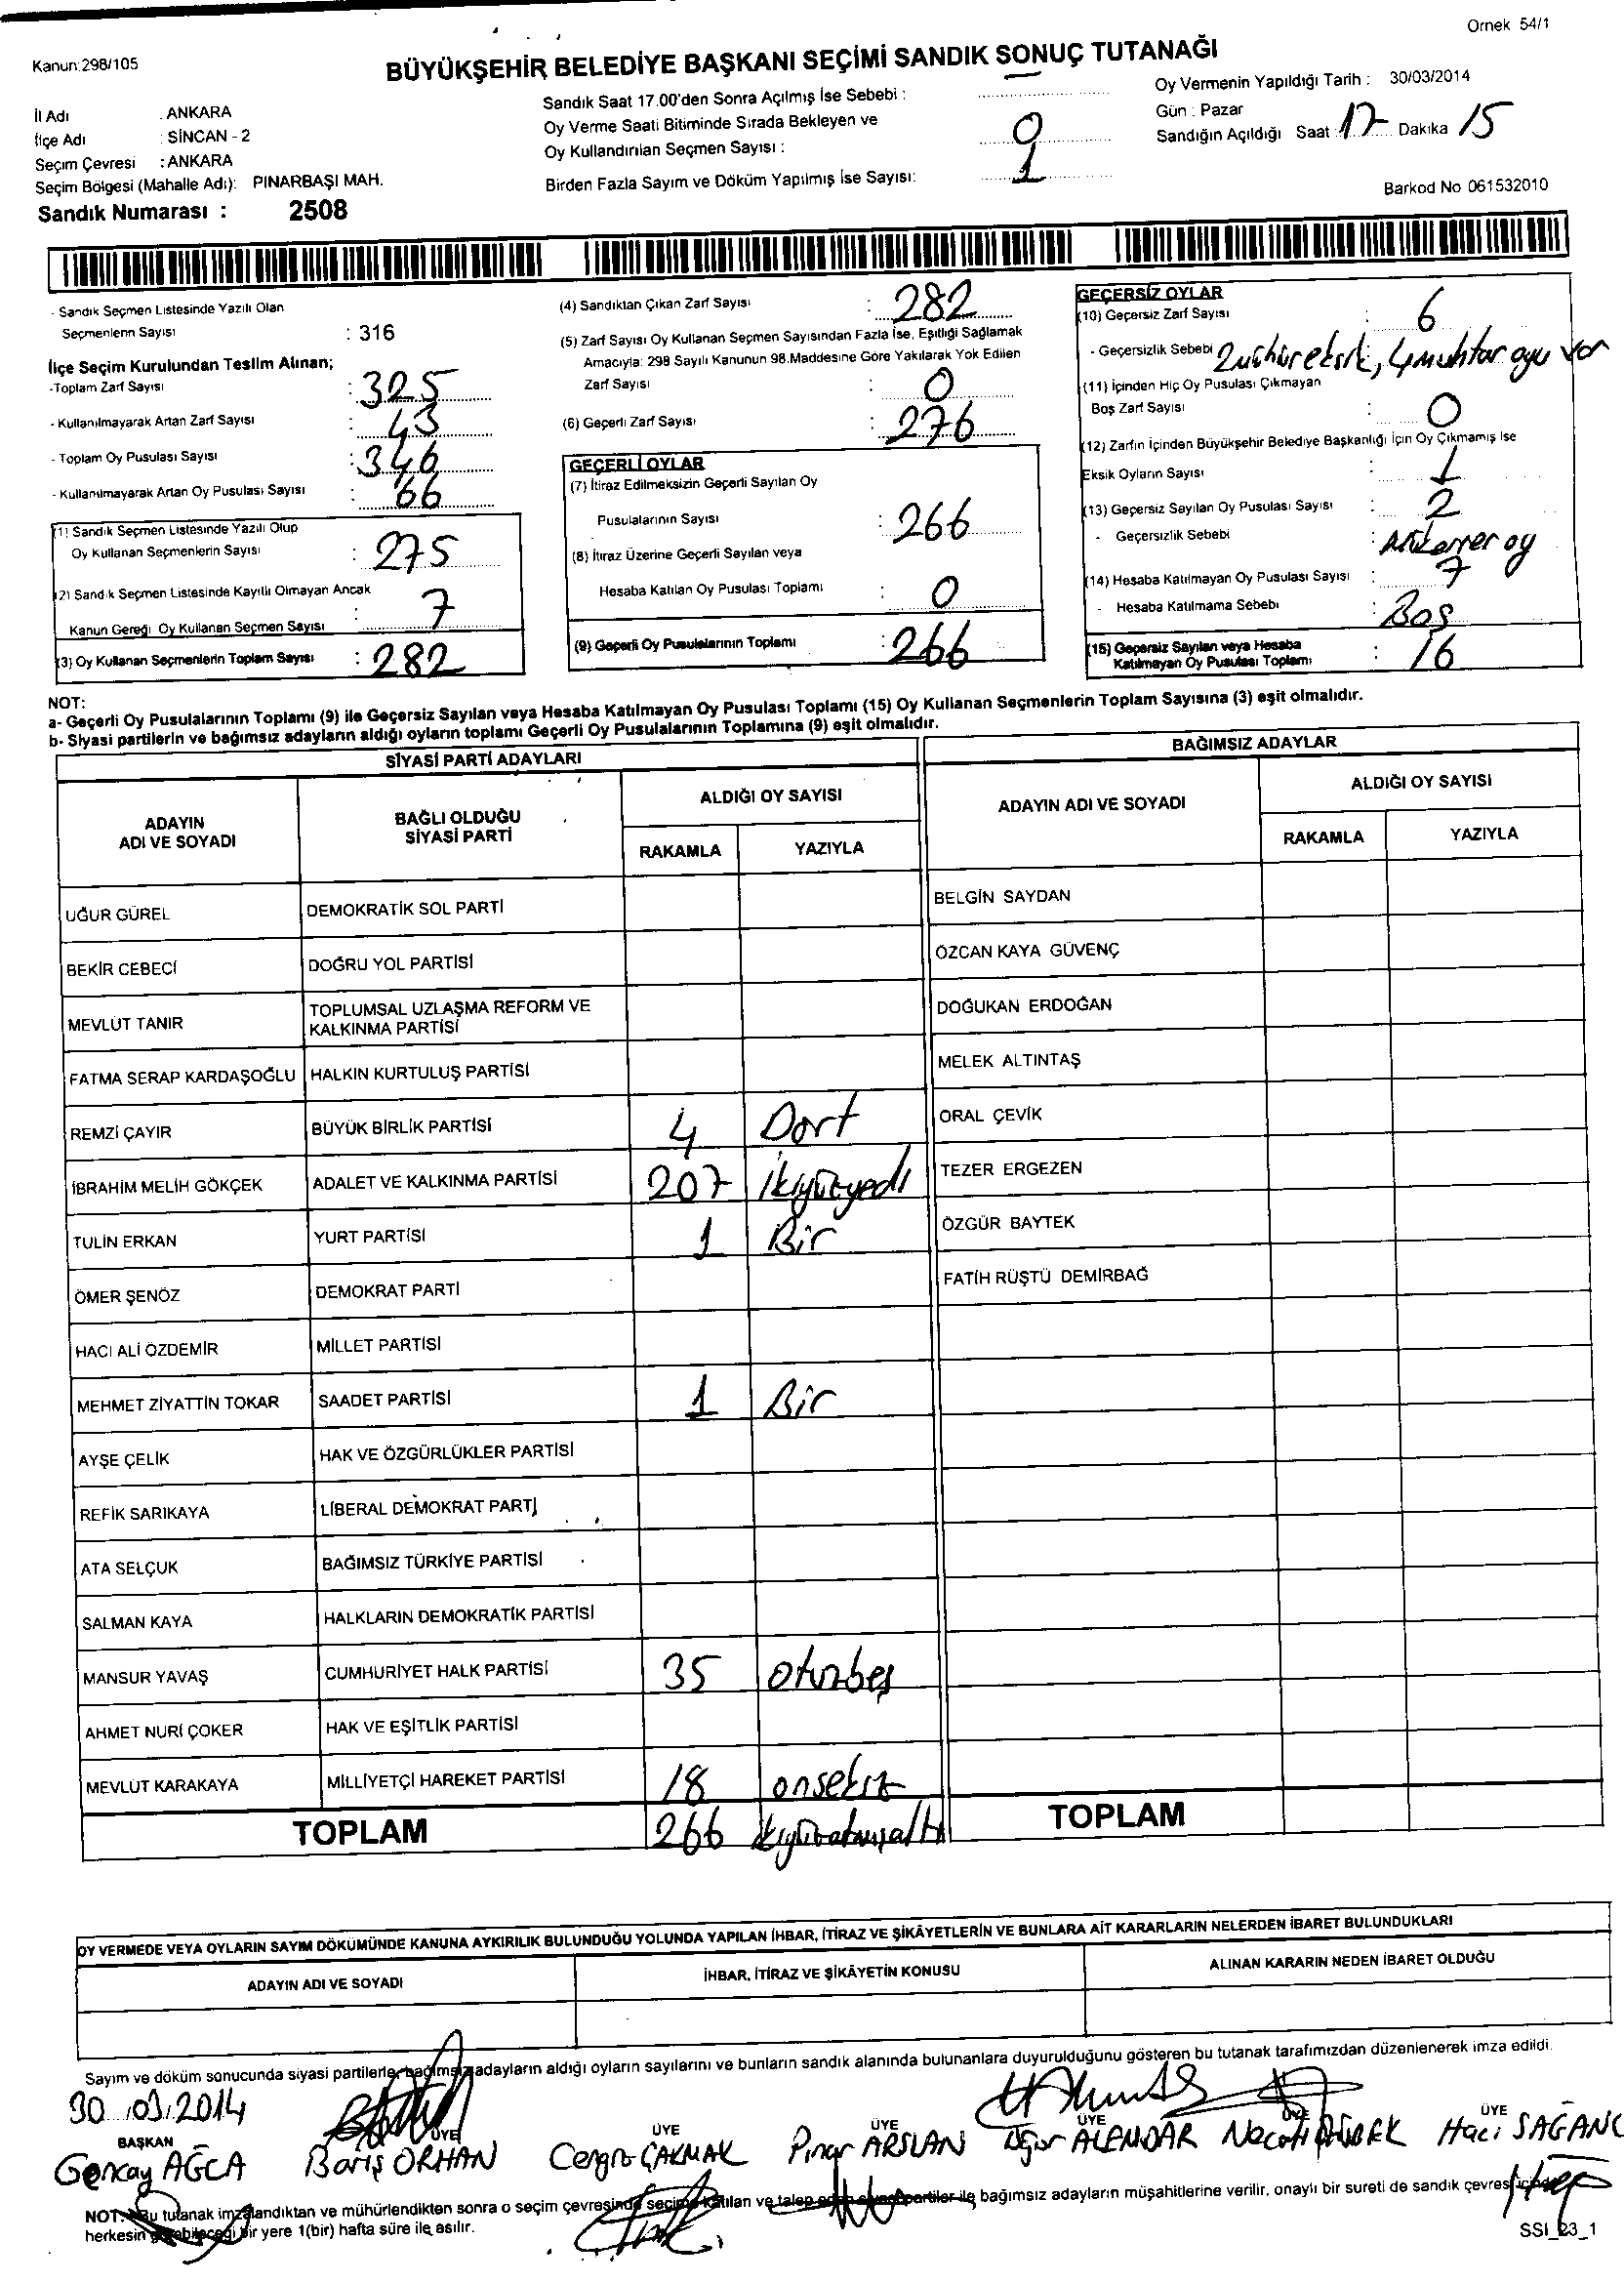 Ornek 54/1
Kanun:298/105
BÜYÜKŞEHİR BELEDİYE BAŞKANI SEÇİMİ SANDIK SONUÇ TUTANAĞI
İl Adı : ANKARA
İlçe Adı : SİNCAN - 2
Seçim Çevresi : ANKARA
Seçim Bölgesi (Mahalle Adı): PINARBAŞI MAH.
Sandık Numarası : 2508
Sandık Saat 17.00'den Sonra Açılmış İse Sebebi : —
Oy Verme Saati Bitiminde Sırada Bekleyen ve
Oy Kullandırılan Seçmen Sayısı : 0
Birden Fazla Sayım ve Döküm Yapılmış İse Sayısı: 1
Oy Vermenin Yapıldığı Tarih : 30/03/2014
Gün : Pazar
Sandığın Açıldığı Saat : 17 Dakika 15
Barkod No 061532010
- Sandık Seçmen Listesinde Yazılı Olan
Seçmenlerin Sayısı : 316
İlçe Seçim Kurulundan Teslim Alınan;
-Toplam Zarf Sayısı : 325
- Kullanılmayarak Artan Zarf Sayısı : 43
- Toplam Oy Pusulası Sayısı : 346
- Kullanılmayarak Artan Oy Pusulası Sayısı : 66
(1) Sandık Seçmen Listesinde Yazılı Olup
Oy Kullanan Seçmenlerin Sayısı : 275
(2) Sandık Seçmen Listesinde Kayıtlı Olmayan Ancak
Kanun Gereği Oy Kullanan Seçmen Sayısı : 7
(3) Oy Kullanan Seçmenlerin Toplam Sayısı : 282
(4) Sandıktan Çıkan Zarf Sayısı : 282
(5) Zarf Sayısı Oy Kullanan Seçmen Sayısından Fazla İse, Eşitliği Sağlamak
Amacıyla: 298 Sayılı Kanunun 98.Maddesine Göre Yakılarak Yok Edilen
Zarf Sayısı : 0
(6) Geçerli Zarf Sayısı : 276
GEÇERLİ OYLAR
(7) İtiraz Edilmeksizin Geçerli Sayılan Oy
Pusulalarının Sayısı : 266
(8) İtiraz Üzerine Geçerli Sayılan veya
Hesaba Katılan Oy Pusulası Toplamı : 0
(9) Geçerli Oy Pusulalarının Toplamı : 266
GEÇERSİZ OYLAR
(10) Geçersiz Zarf Sayısı : 6
- Geçersizlik Sebebi 2 mühür eksik, 4 muhtar oyu var
(11) İçinden Hiç Oy Pusulası Çıkmayan
Boş Zarf Sayısı : 0
(12) Zarfın İçinden Büyükşehir Belediye Başkanlığı İçin Oy Çıkmamış İse
Eksik Oyların Sayısı : 1
(13) Geçersiz Sayılan Oy Pusulası Sayısı : 2
- Geçersizlik Sebebi : Mükerrer oy
(14) Hesaba Katılmayan Oy Pusulası Sayısı : 7
- Hesaba Katılmama Sebebi : Boş
(15) Geçersiz Sayılan veya Hesaba
Katılmayan Oy Pusulası Toplamı : 16
NOT:
a- Geçerli Oy Pusulalarının Toplamı (9) ile Geçersiz Sayılan veya Hesaba Katılmayan Oy Pusulası Toplamı (15) Oy Kullanan Seçmenlerin Toplam Sayısına (3) eşit olmalıdır.
b- Siyasi partilerin ve bağımsız adayların aldığı oyların toplamı Geçerli Oy Pusulalarının Toplamına (9) eşit olmalıdır.
SİYASİ PARTİ ADAYLARI
ADAYIN
ADI VE SOYADI
BAĞLI OLDUĞU
SİYASİ PARTİ
ALDIĞI OY SAYISI
RAKAMLA YAZIYLA
UĞUR GÜREL DEMOKRATİK SOL PARTİ
BEKİR CEBECİ DOĞRU YOL PARTİSİ
MEVLÜT TANIR TOPLUMSAL UZLAŞMA REFORM VE
KALKINMA PARTİSİ
FATMA SERAP KARDAŞOĞLU HALKIN KURTULUŞ PARTİSİ
REMZİ ÇAYIR BÜYÜK BİRLİK PARTİSİ 4 Dört
İBRAHİM MELİH GÖKÇEK ADALET VE KALKINMA PARTİSİ 207 ikiyüzyedi
TULİN ERKAN YURT PARTİSİ 1 Bir
ÖMER ŞENÖZ DEMOKRAT PARTİ
HACI ALİ ÖZDEMİR MİLLET PARTİSİ
MEHMET ZİYATTİN TOKAR SAADET PARTİSİ 1 Bir
AYŞE ÇELİK HAK VE ÖZGÜRLÜKLER PARTİSİ
REFİK SARIKAYA LİBERAL DEMOKRAT PARTİ
ATA SELÇUK BAĞIMSIZ TÜRKİYE PARTİSİ
SALMAN KAYA HALKLARIN DEMOKRATİK PARTİSİ
MANSUR YAVAŞ CUMHURİYET HALK PARTİSİ 35 otuzbeş
AHMET NURİ ÇOKER HAK VE EŞİTLİK PARTİSİ
MEVLÜT KARAKAYA MİLLİYETÇİ HAREKET PARTİSİ 18 onsekiz
TOPLAM 266 ikiyüzatmışaltı
BAĞIMSIZ ADAYLAR
ADAYIN ADI VE SOYADI
ALDIĞI OY SAYISI
RAKAMLA YAZIYLA
BELGİN SAYDAN
ÖZCAN KAYA GÜVENÇ
DOĞUKAN ERDOĞAN
MELEK ALTINTAŞ
ORAL ÇEVİK
TEZER ERGEZEN
ÖZGÜR BAYTEK
FATİH RÜŞTÜ DEMİRBAĞ
TOPLAM
OY VERMEDE VEYA OYLARIN SAYIM DÖKÜMÜNDE KANUNA AYKIRILIK BULUNDUĞU YOLUNDA YAPILAN İHBAR, İTİRAZ VE ŞİKÂYETLERİN VE BUNLARA AİT KARARLARIN NELERDEN İBARET BULUNDUKLARI
ADAYIN ADI VE SOYADI İHBAR, İTİRAZ VE ŞİKÂYETİN KONUSU ALINAN KARARIN NEDEN İBARET OLDUĞU
Sayım ve döküm sonucunda siyasi partilerle bağımsız adayların aldığı oyların sayılarını ve bunların sandık alanında bulunanlara duyurulduğunu gösteren bu tutanak tarafımızdan düzenlenerek imza edildi.
30/03/2014
BAŞKAN ÜYE ÜYE ÜYE ÜYE ÜYE ÜYE
Gencay AĞCA Barış ORHAN Cengiz ÇAKMAK Pınar ARSLAN Uğur ALEMDAR Necati Hacı SAĞANC
NOT: Bu tutanak imzalandıktan ve mühürlendikten sonra o seçim çevresinde seçime katılan ve talep eden siyasi partiler ile bağımsız adayların müşahitlerine verilir, onaylı bir sureti de sandık çevresi içinde
herkesin görebileceği bir yere 1(bir) hafta süre ile asılır.
SSI_23_1